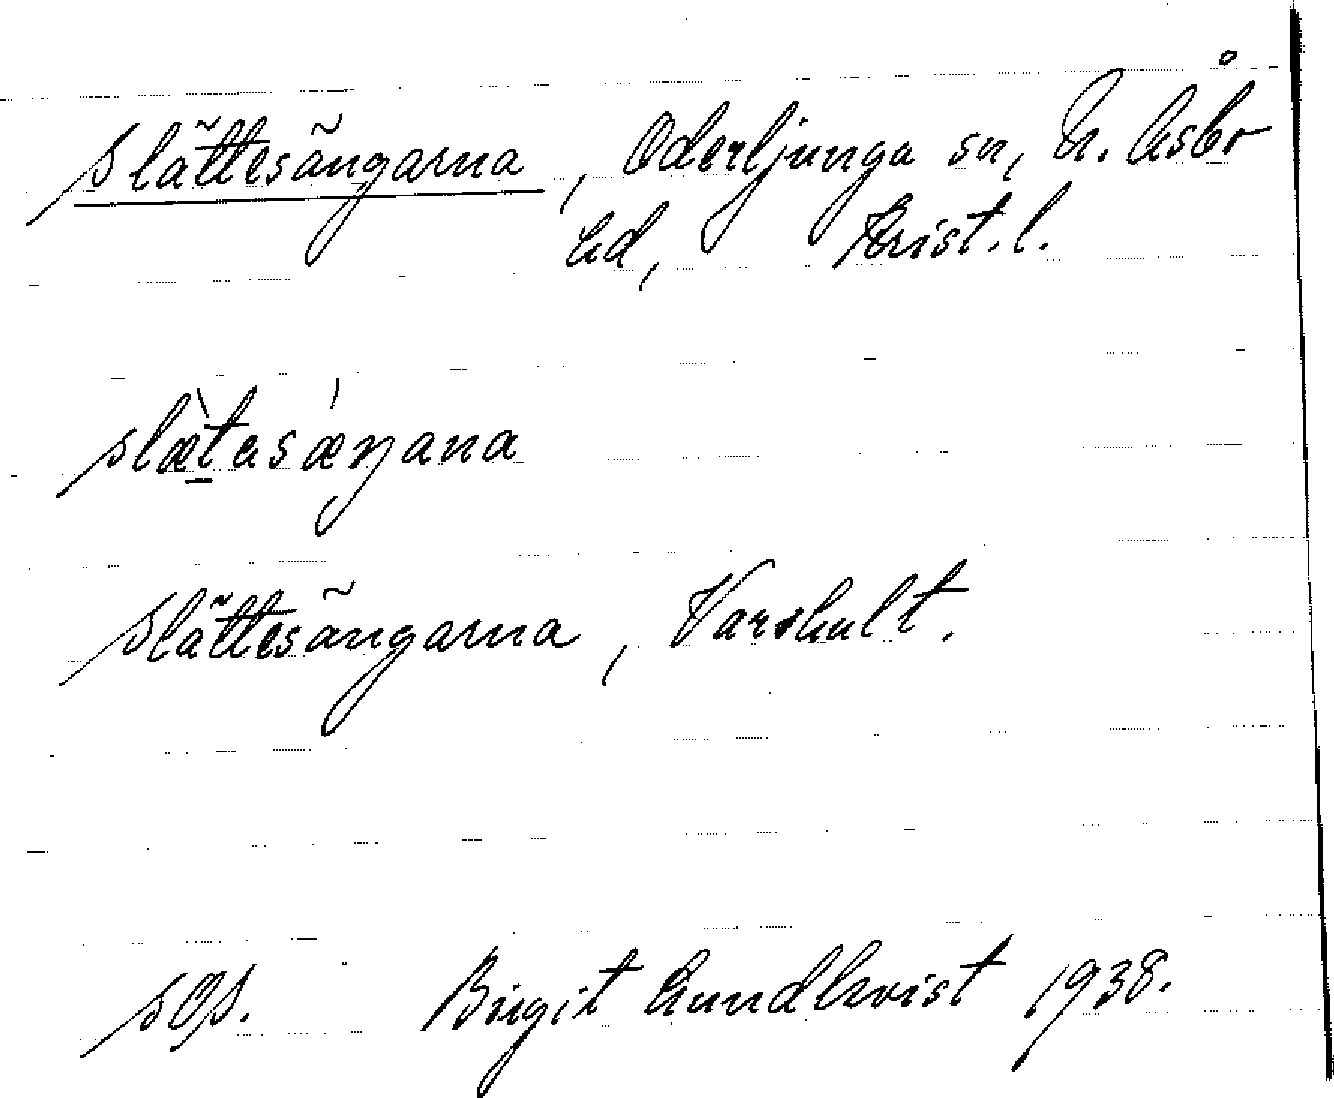 Slättesängarna, Oderljunga sn, N. Åsbo
hd, Krist. l.
slætasæŋana
Slättesängarna, Varshult.
SOS. Birgit Lundkvist 1938.